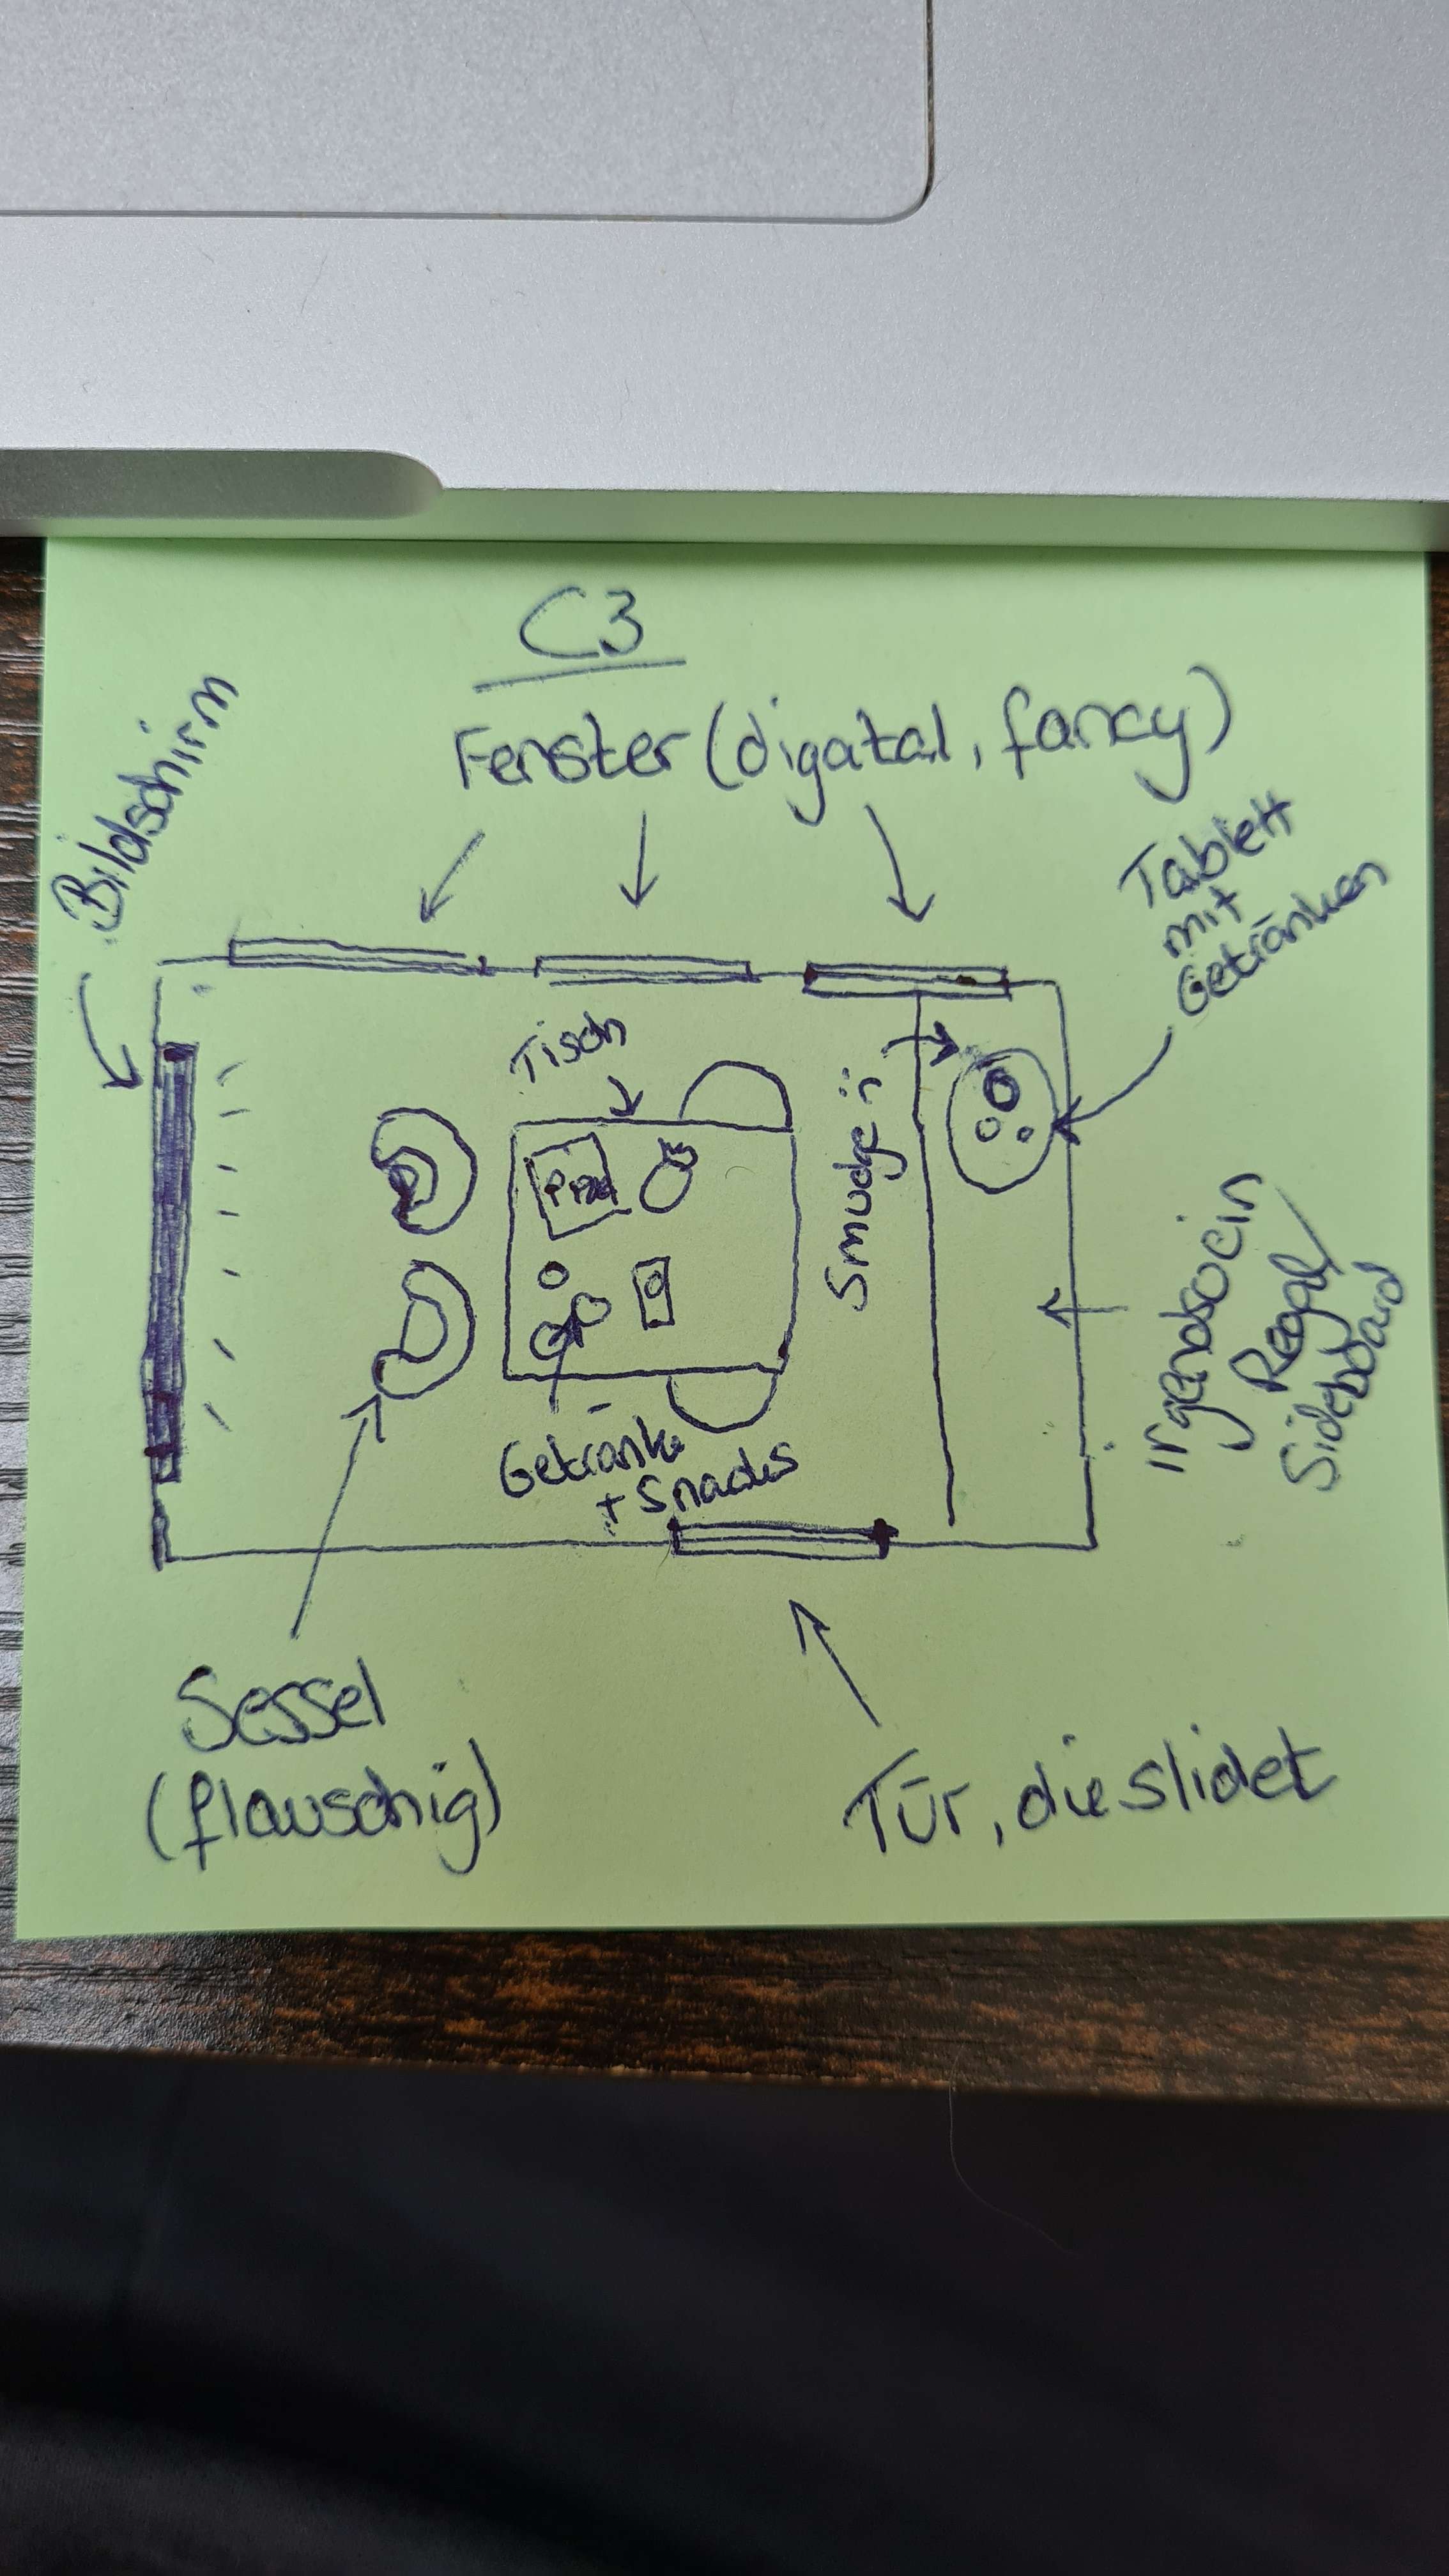 C3
Fenster (digatal, fancy)
Bildschirm
Tablett
mit
Getränken
Tisch
Smudge :)
Irgendsoein
Regal/
Sideboard
Getränke
+ Snacks
Sessel
(flauschig)
Tür, die slidet